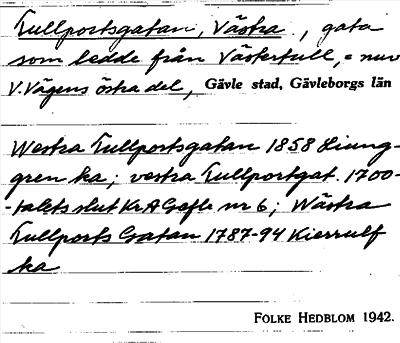 Tullportsgatan, Västra, gata
som ledde från Västertull, = nuv
V. Vägens östra del, Gävle stad, Gävleborgs län
Westra Tullportsgatan 1858 Ljung-
gren ka; vestra Tullportgat. 1700-
-talets slut Kr A Gefle nr 6; Wästra
Tullports Gatan 1787-94 Kierrulf
ka
FOLKE HEDBLOM 1942.